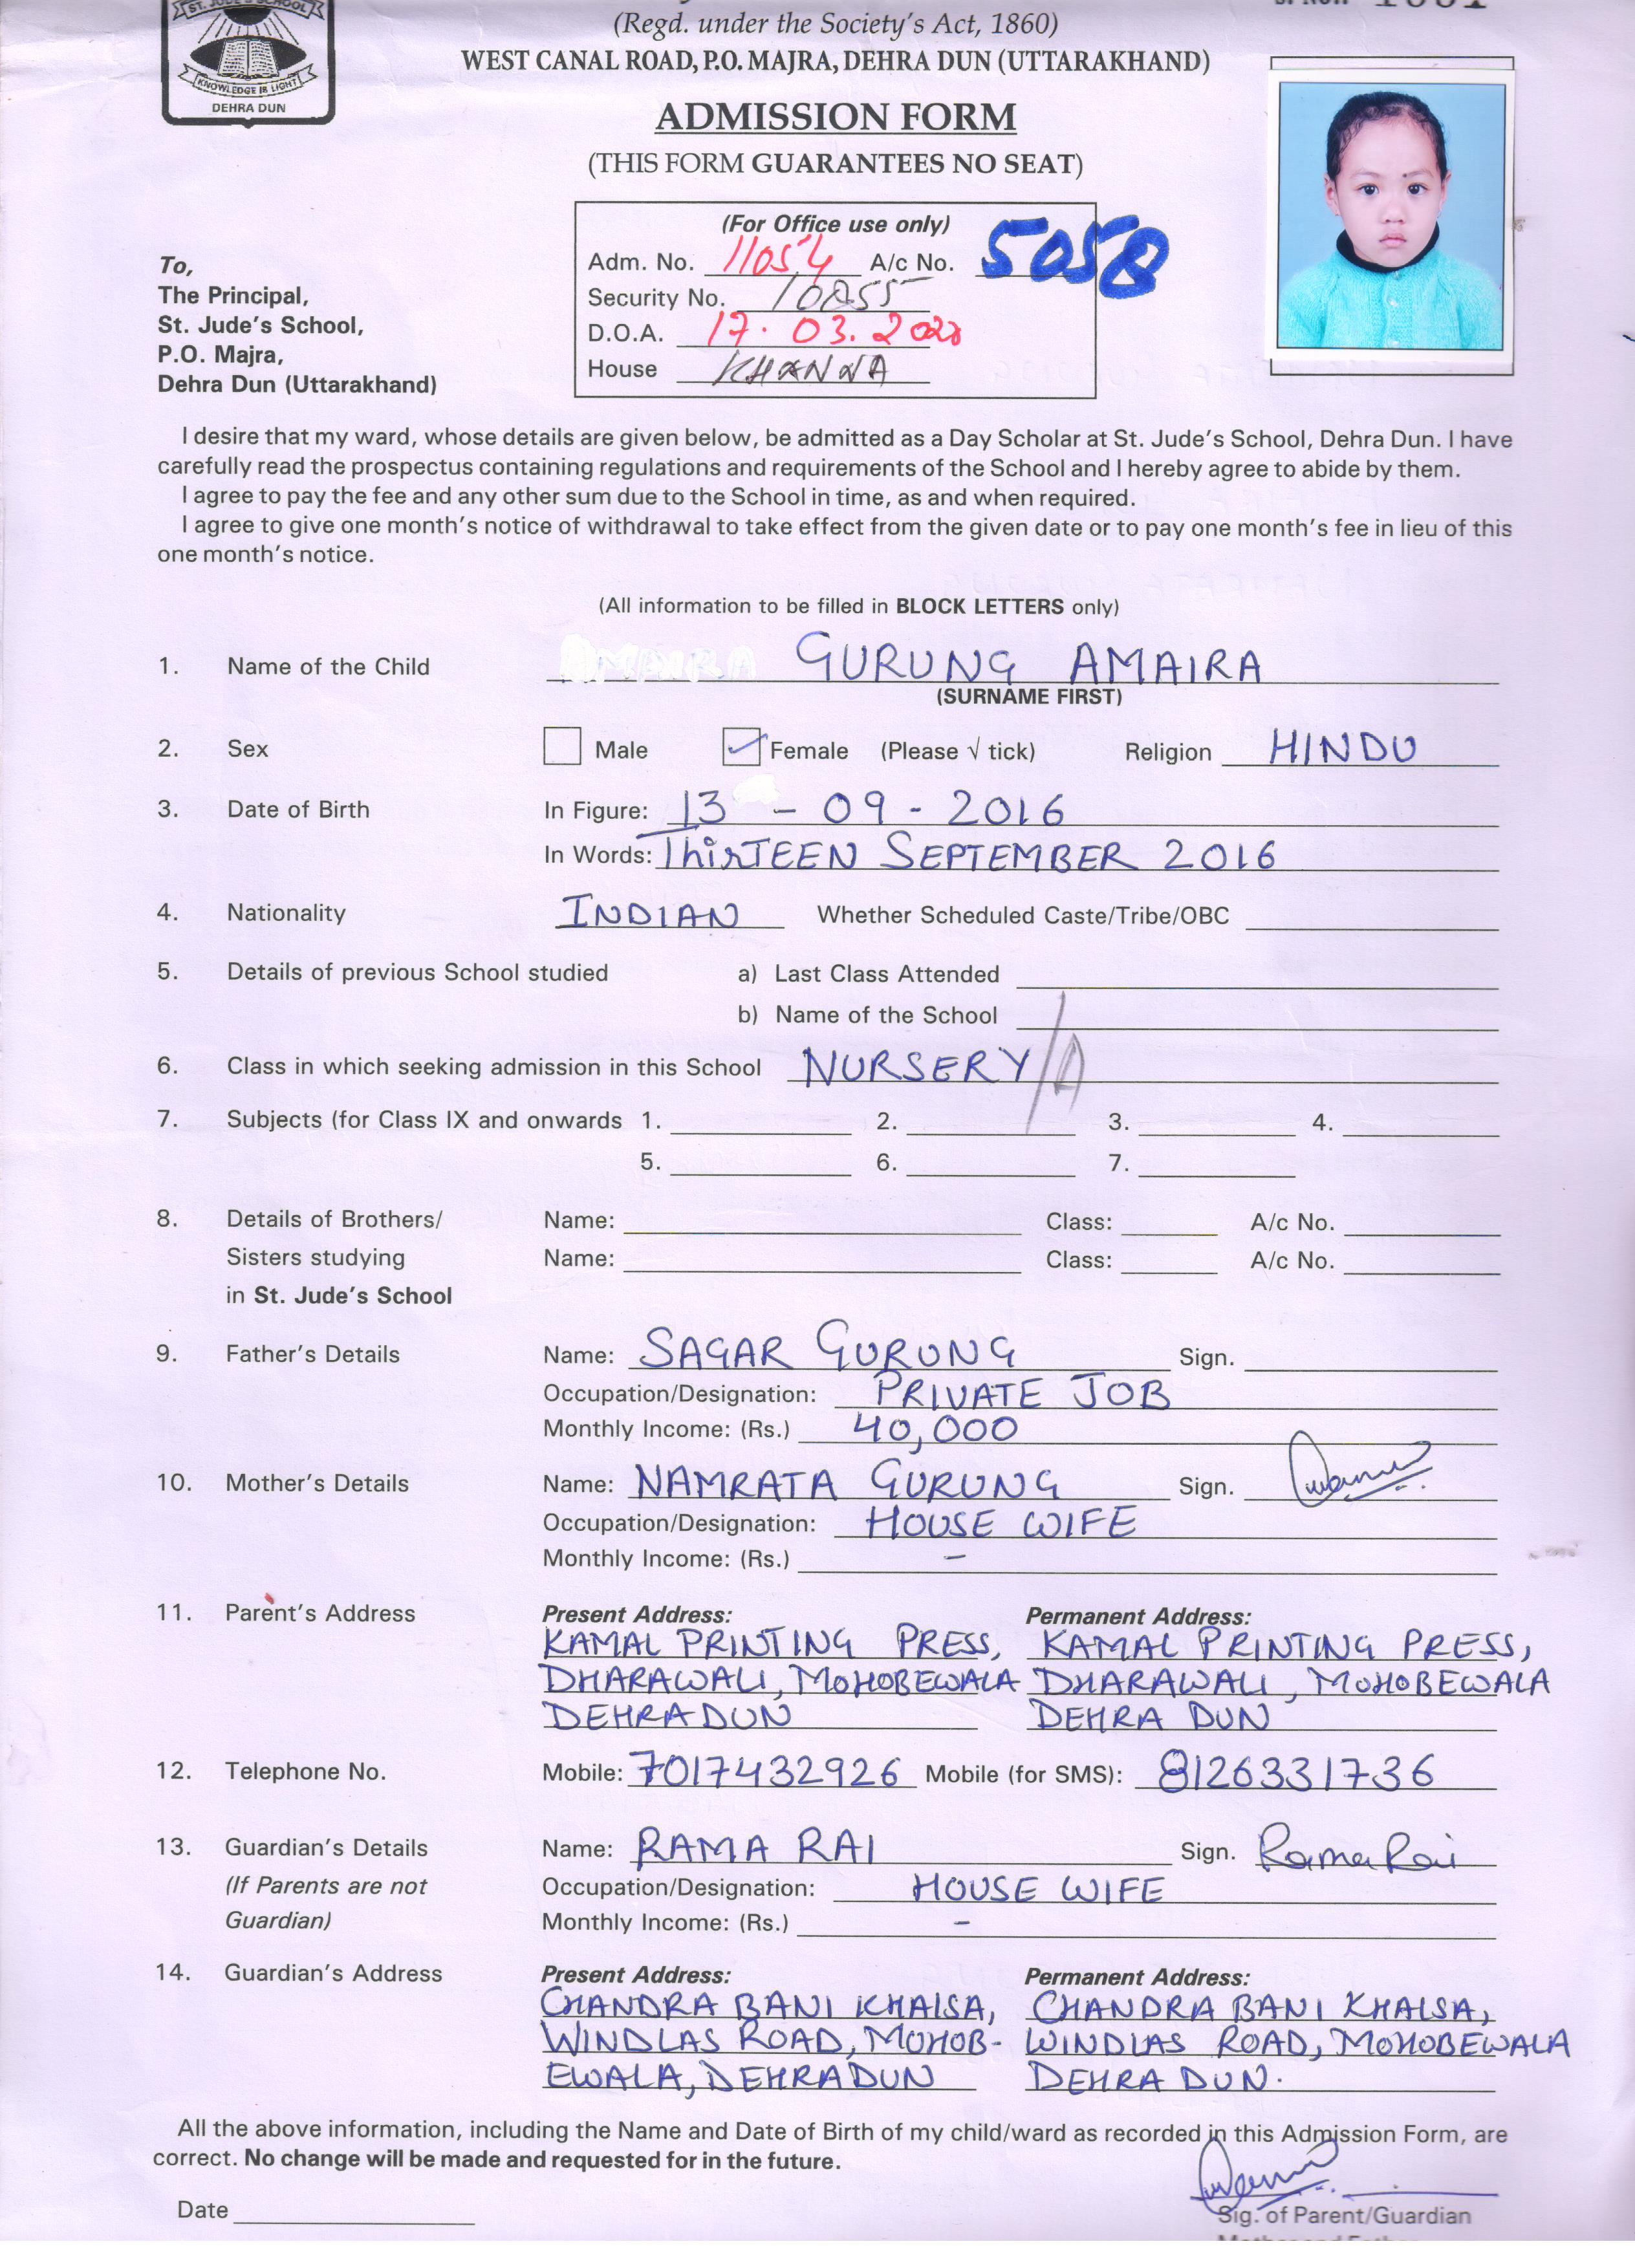 ST. JUDE'S SCHOOL
KNOWLEDGE IS LIGHT
DEHRA DUN
(Regd. under the Society's Act, 1860)
WEST CANAL ROAD, P.O. MAJRA, DEHRA DUN (UTTARAKHAND)
ADMISSION FORM
(THIS FORM GUARANTEES NO SEAT)
(For Office use only)
Adm. No. 11054 A/c No. 5058
Security No.
D.O.A. 17.03.2020
House KHANNA
To,
The Principal,
St. Jude's School,
P.O. Majra,
Dehra Dun (Uttarakhand)
I desire that my ward, whose details are given below, be admitted as a Day Scholar at St. Jude's School, Dehra Dun. I have
carefully read the prospectus containing regulations and requirements of the School and I hereby agree to abide by them.
I agree to pay the fee and any other sum due to the School in time, as and when required.
I agree to give one month's notice of withdrawal to take effect from the given date or to pay one month's fee in lieu of this
one month's notice.
(All information to be filled in BLOCK LETTERS only)
1. Name of the Child AMAIRA GURUNG AMAIRA
(SURNAME FIRST)
2. Sex Male Female (Please √ tick) Religion HINDU
3. Date of Birth In Figure: 13 - 09 - 2016
In Words: ThirTEEN SEPTEMBER 2016
4. Nationality INDIAN Whether Scheduled Caste/Tribe/OBC
5. Details of previous School studied a) Last Class Attended
b) Name of the School
6. Class in which seeking admission in this School NURSERY/A
7. Subjects (for Class IX and onwards 1. 2. 3. 4.
5. 6. 7.
8. Details of Brothers/ Name: Class: A/c No.
Sisters studying Name: Class: A/c No.
in St. Jude's School
9. Father's Details Name: SAGAR GURUNG Sign.
Occupation/Designation: PRIVATE JOB
Monthly Income: (Rs.) 40,000
10. Mother's Details Name: NAMRATA GURUNG Sign.
Occupation/Designation: HOUSE WIFE
Monthly Income: (Rs.) -
11. Parent's Address Present Address: Permanent Address:
KAMAL PRINTING PRESS, KAMAL PRINTING PRESS,
DHARAWALI, MOHOBEWALA DHARAWALI, MOHOBEWALA
DEHRADUN DEHRA DUN
12. Telephone No. Mobile: 7017432926 Mobile (for SMS): 8126331736
13. Guardian's Details Name: RAMA RAI Sign. Rama Rai
(If Parents are not Occupation/Designation: HOUSE WIFE
Guardian) Monthly Income: (Rs.) -
14. Guardian's Address Present Address: Permanent Address:
CHANDRA BANI KHALSA, CHANDRA BANI KHALSA,
WINDLAS ROAD, MOHOB- WINDLAS ROAD, MOHOBEWALA
EWALA, DEHRADUN DEHRA DUN.
All the above information, including the Name and Date of Birth of my child/ward as recorded in this Admission Form, are
correct. No change will be made and requested for in the future.
Date
Sig. of Parent/Guardian